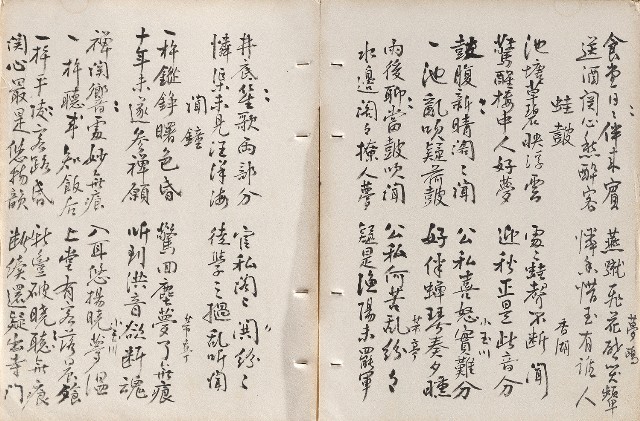 夢鷗
食堂日〻伴來賓 燕蹴飛花砌笑顰
送酒関心愁醉客 憐香惜玉有誰人
蛙鼓 香湖
池塘草碧映浮雲 處〻蛙聲不斷聞
驚醒樓中人好夢 迎秋正是此音分
小玉川
鼓腹新晴閣〻聞 公私喜怒實難分
一池亂吹疑荷鼓 好伴蟬琴奏夕曛
芾亭
雨後聊當鼓吹聞 公私何苦亂紛〻
水邊閣〻撩人夢 疑是漁陽未罷軍
井底笙歌兩部分 官私閣〻鬧紛〻
憐渠未見汪洋海 徒學三撾亂聽聞
聞鐘 芾亭
一杵鏗錚曙色昏 驚回塵夢了無痕
十年未遂參禪願 聽到洪音欲斷魂
小玉川
禪関響處妙無痕 入耳悠揚曉夢溫
一杵聽來知飯后 上堂有客
一杵平凌客路昏 破曉聽無痕
関心最是悠揚韻 斷續還疑出寺門